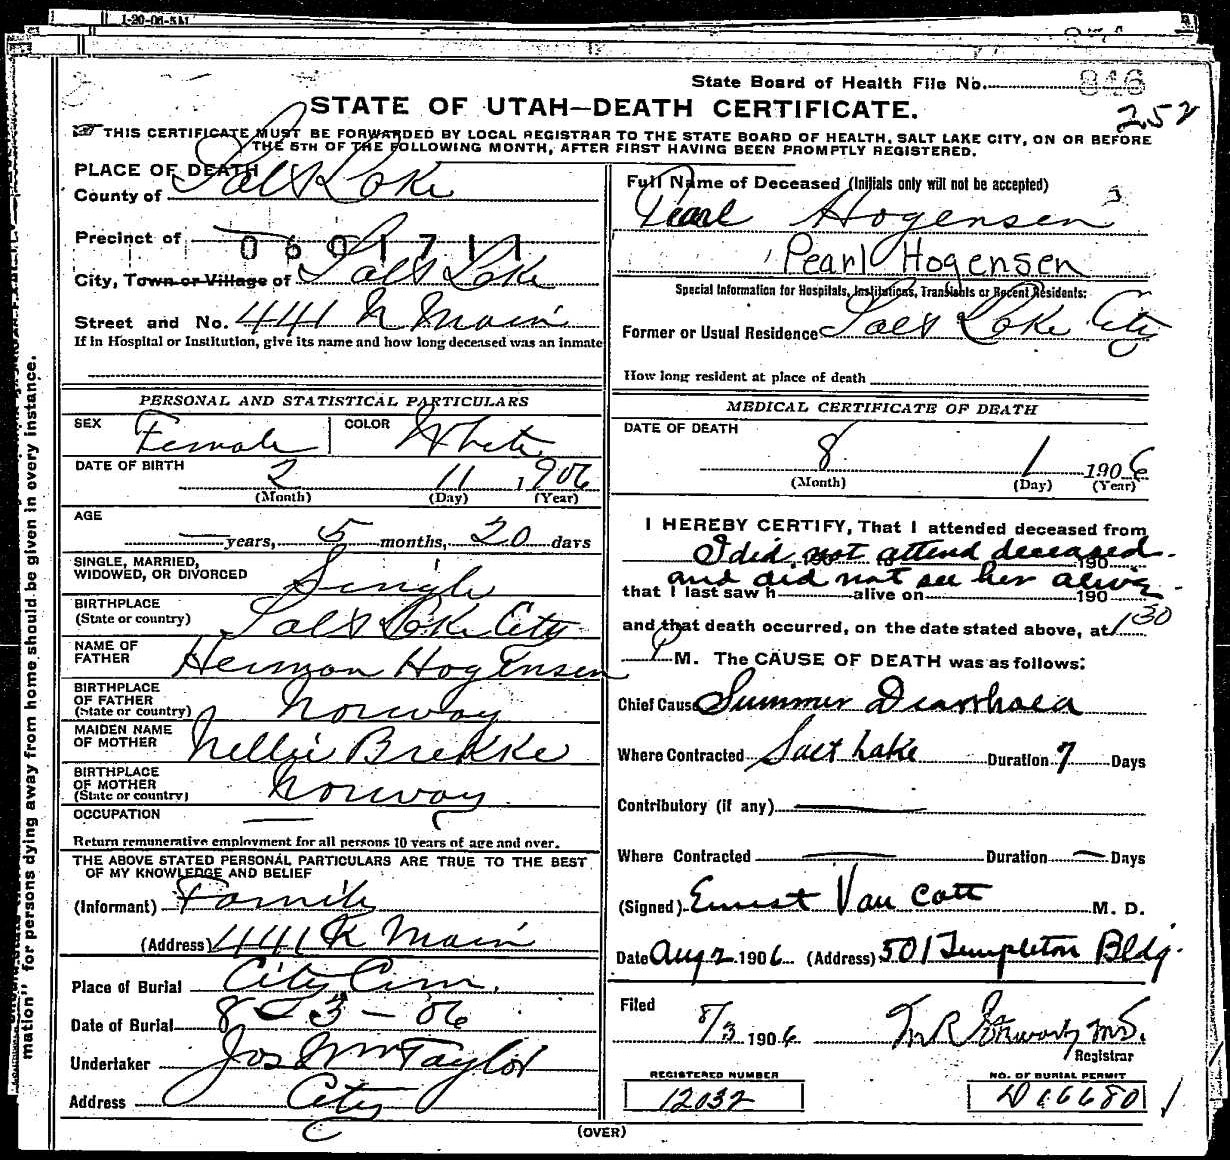 1-20-06-5M
State Board of Health File No. 846
252
STATE OF UTAH—DEATH CERTIFICATE.
THIS CERTIFICATE MUST BE FORWARDED BY LOCAL REGISTRAR TO THE STATE BOARD OF HEALTH, SALT LAKE CITY, ON OR BEFORE
THE 5TH OF THE FOLLOWING MONTH, AFTER FIRST HAVING BEEN PROMPTLY REGISTERED.
PLACE OF DEATH
County of Salt Lake
Precinct of
0601711
City, Town or Village of Salt Lake
Street and No. 441 N Main
If in Hospital or Institution, give its name and how long deceased was an inmate
PERSONAL AND STATISTICAL PARTICULARS
SEX Female COLOR White
DATE OF BIRTH 2 11 1906
(Month) (Day) (Year)
AGE
— years, 5 months, 20 days
SINGLE, MARRIED,
WIDOWED, OR DIVORCED Single
BIRTHPLACE
(State or country) Salt Lake City
NAME OF
FATHER Herman Hogensen
BIRTHPLACE
OF FATHER
(State or country) Norway
MAIDEN NAME
OF MOTHER Nellie Brekke
BIRTHPLACE
OF MOTHER
(State or country) Norway
OCCUPATION —
Return remunerative employment for all persons 10 years of age and over.
THE ABOVE STATED PERSONAL PARTICULARS ARE TRUE TO THE BEST
OF MY KNOWLEDGE AND BELIEF
(Informant) Family
(Address) 441 N Main
Place of Burial City Cem.
Date of Burial 8-3-06
Undertaker Jos Wm Taylor
Address City
Full Name of Deceased (Initials only will not be accepted)
Pearl Hogensen
Pearl Hogensen
Special Information for Hospitals, Institutions, Transients or Recent Residents:
Former or Usual Residence Salt Lake City
How long resident at place of death
MEDICAL CERTIFICATE OF DEATH
DATE OF DEATH
8 1 1906
(Month) (Day) (Year)
I HEREBY CERTIFY, That I attended deceased from
I did not attend deceased 190
and did not see her alive
that I last saw h alive on 190
and that death occurred, on the date stated above, at 130
P M. The CAUSE OF DEATH was as follows:
Chief Cause Summer Diarrhoea
Where Contracted Salt Lake Duration 7 Days
Contributory (if any) —
Where Contracted — Duration — Days
(Signed) Ernest Van Cott M. D.
Date Aug 2 1906 (Address) 501 Templeton Bldg.
Filed
8/3 1906
Registrar
REGISTERED NUMBER
12032
NO. OF BURIAL PERMIT
D 16680
(OVER)
mation" for persons dying away from home should be given in every instance.